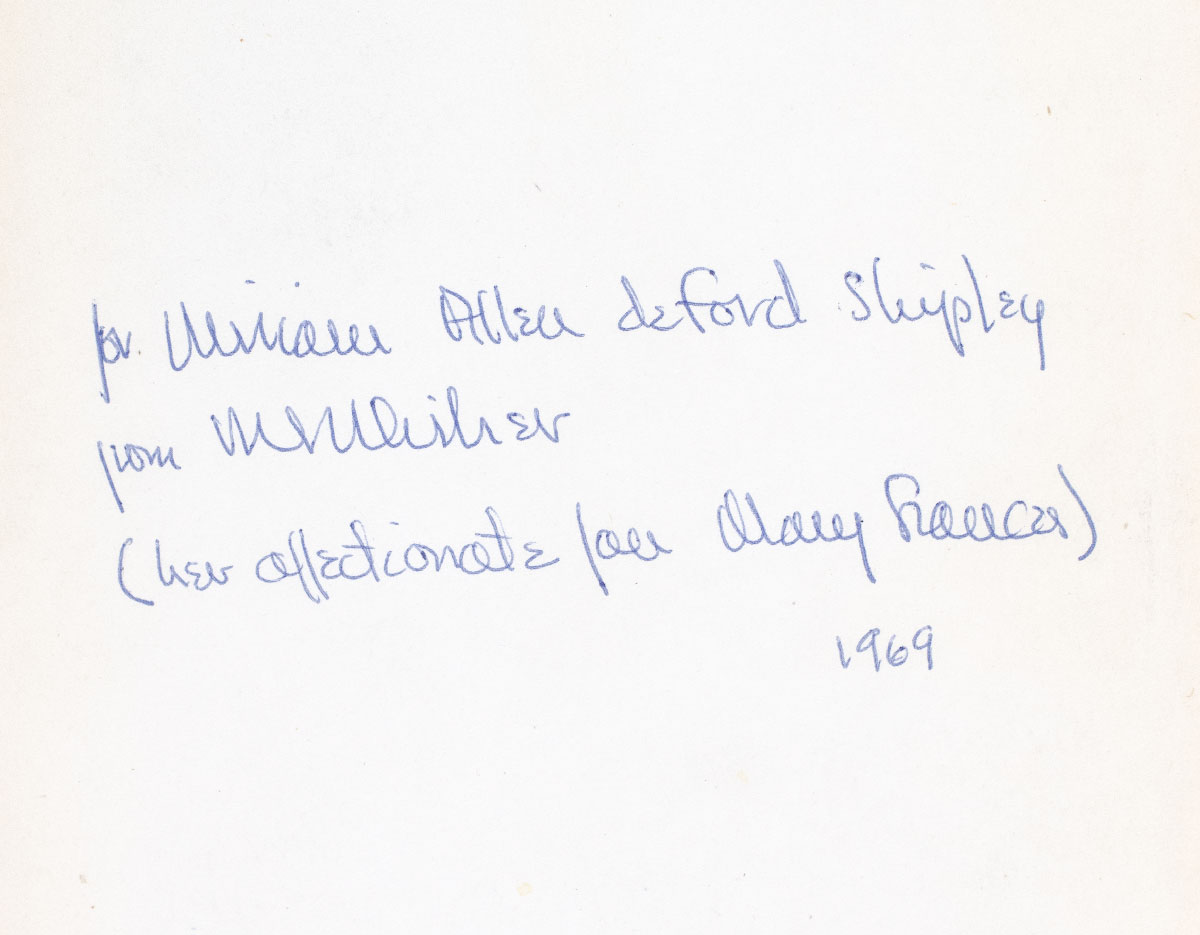 for Miriam Allen deFord Shipley
from MFKFisher
(her affectionate fan Mary Frances)
1969